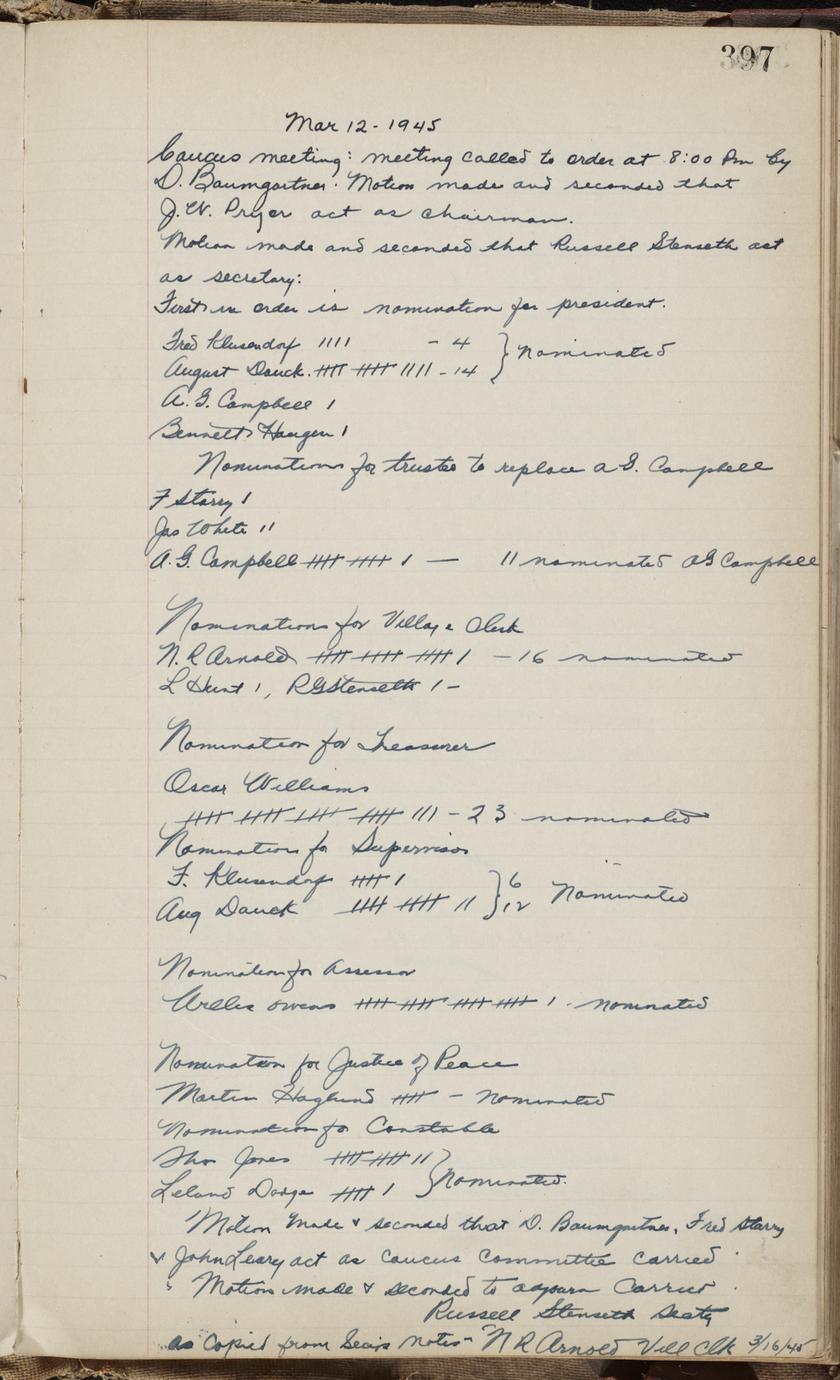 397
Mar 12 - 1945
Caucus meeting: meeting called to order at 8:00 Pm by
D. Baumgartner. Motion made and seconded that
J.W. Pryer act as chairman.
Motion made and seconded that Russell Stenseth act
as secretary:
First in order is nomination for president.
Fred Klusendorf IIII - 4 } nominated
August Dauck. IIII IIII IIII - 14
A. G. Campbell 1
Bennett Haugen 1
Nominations for trustee to replace A G. Campbell
F Starry 1
Jas White 11
A. G. Campbell IIII IIII 1 — 11 nominated AG Campbell
Nominations for Village Clerk
N. R Arnold IIII IIII IIII 1 - 16 nominated
L Hunt 1, RGStenseth 1 -
Nomination for Treasurer
Oscar Williams
IIII IIII IIII IIII III - 23 nominated
Nomination for Supervisor
F. Klusendorf IIII 1 } 6 Nominated
Aug Dauck IIII IIII 11 12
Nomination for Assessor
Willis Owens IIII IIII IIII IIII 1 - nominated
Nomination for Justice of Peace
Martin Haglund IIII - nominated
Nomination for Constable
Thos Jones IIII IIII 11 } Nominated.
Leland Dodge IIII 1
Motion made & seconded that D. Baumgartner, Fred Starry
& John Leary act as caucus committee carried
Motion made & seconded to adjourn Carried
Russell Stenseth Secty
as Copied from Sec's notes - N R Arnold Vill Clk 3/16/45